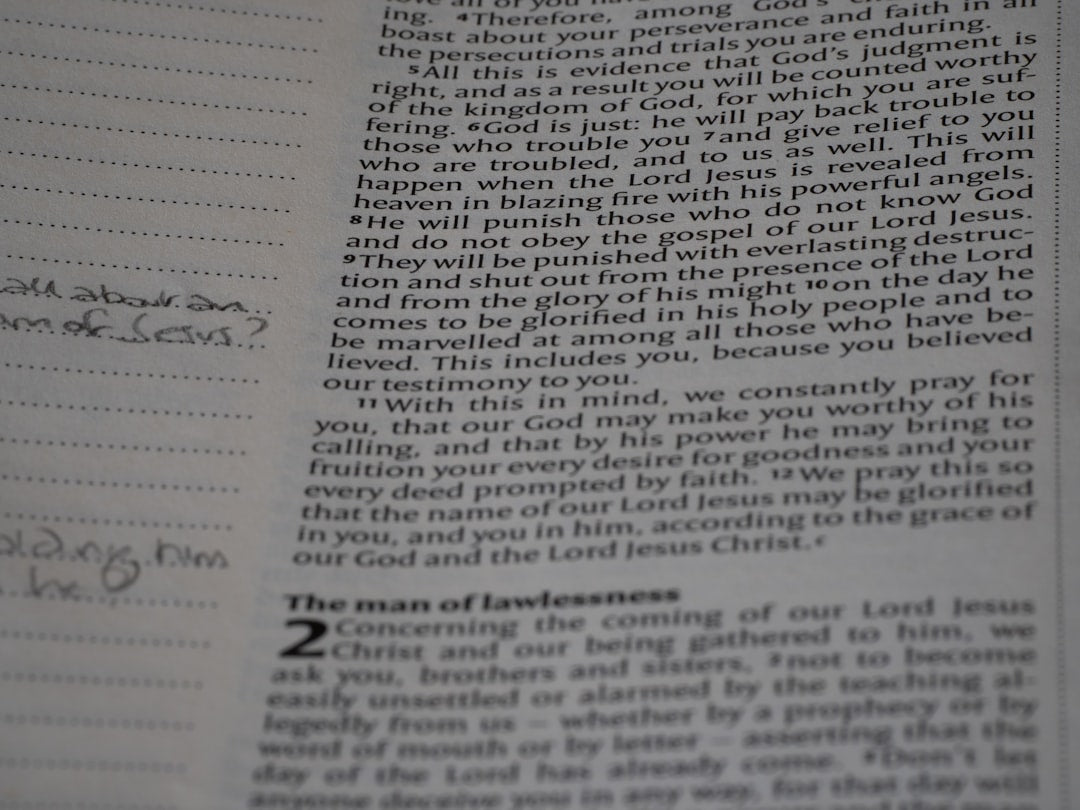 all about an...
Jesus?
him
he
ing. 4Therefore, among God's
boast about your perseverance and faith in all
the persecutions and trials you are enduring.
5All this is evidence that God's judgment is
right, and as a result you will be counted worthy
of the kingdom of God, for which you are suf-
fering. 6God is just: he will pay back trouble to
those who trouble you 7and give relief to you
who are troubled, and to us as well. This will
happen when the Lord Jesus is revealed from
heaven in blazing fire with his powerful angels.
8He will punish those who do not know God
and do not obey the gospel of our Lord Jesus.
9They will be punished with everlasting destruc-
tion and shut out from the presence of the Lord
and from the glory of his might 10on the day he
comes to be glorified in his holy people and to
be marvelled at among all those who have be-
lieved. This includes you, because you believed
our testimony to you.
11With this in mind, we constantly pray for
you, that our God may make you worthy of his
calling, and that by his power he may bring to
fruition your every desire for goodness and your
every deed prompted by faith. 12We pray this so
that the name of our Lord Jesus may be glorified
in you, and you in him, according to the grace of
our God and the Lord Jesus Christ.c
The man of lawlessness
2 Concerning the coming of our Lord Jesus
Christ and our being gathered to him, we
ask you, brothers and sisters, 2not to become
easily unsettled or alarmed by the teaching al-
legedly from us – whether by a prophecy or by
word of mouth or by letter – asserting that the
day of the Lord has already come. 3Don't let
anyone deceive you in any way, for that day will